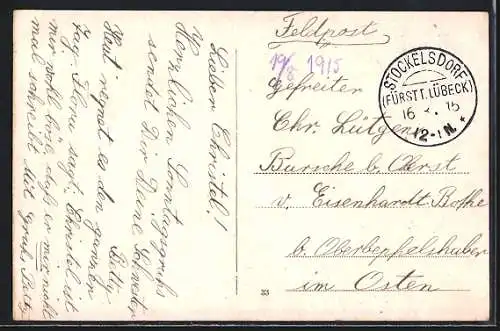 Feldpost
19/8 1915
STOCKELSDORF
(FÜRSTT. LÜBECK)
16 8. 15
12-1 N.
Gefreiter
Chr. Lütgen
Bursche b. Oberst
v. Eisenhardt-Rothe
b. Oberbefehlshaber
im Osten
33
Lieber Christel!
Herzlichen Sonntagsgruß
sendet Dir Deine Schwester
Betty
Heut regnet es den ganzen
Tag. Flora sagt, Christel ist
mir wohl böse, daß er mir nicht
mal schreibt. Mit Gruß Betty